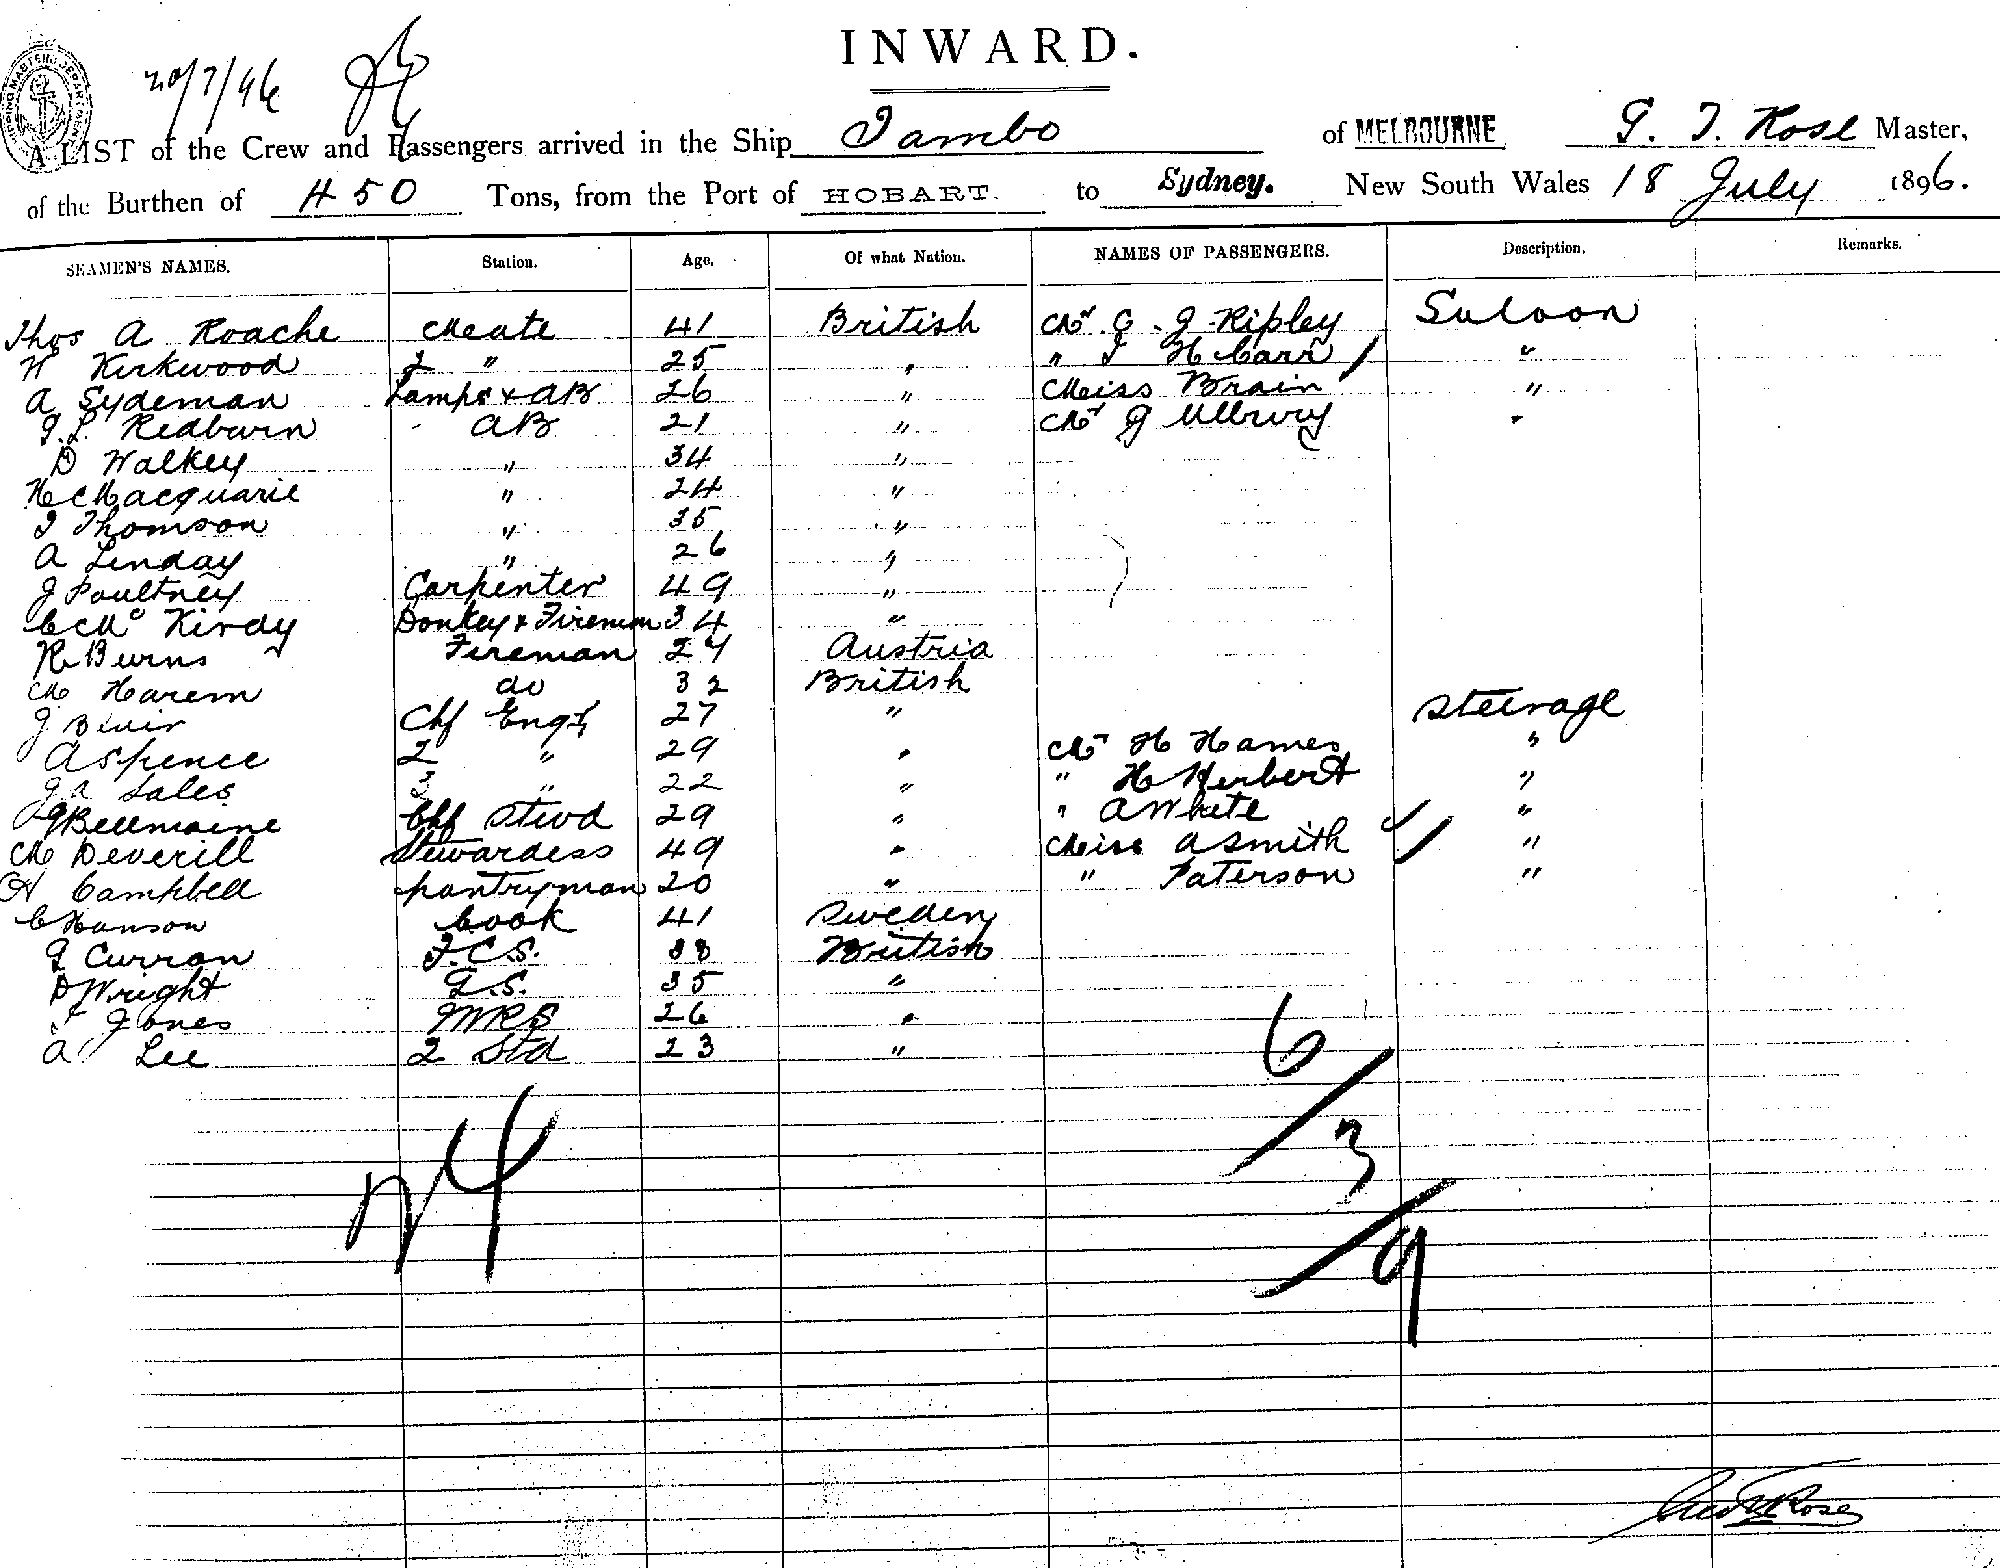 INWARD.
20/7/96
A LIST of the Crew and Passengers arrived in the Ship Tambo of MELBOURNE G. T. Rose Master,
of the Burthen of 450 Tons, from the Port of HOBART. to Sydney. New South Wales 18 July 1896.
SEAMEN'S NAMES. Station. Age. Of what Nation. NAMES OF PASSENGERS. Description. Remarks.
Thos A Roache Mate 41 British Mr G. J Ripley Saloon
W Kirkwood 2 " 25 " " T H Carr "
A Sydeman Lamps & AB 26 " Miss Brain "
Redburn AB 21 " Mr J "
D Walkey " 34 "
H Macquarie " 24 "
J Thomson " 35 "
A Linday " 26 "
J Poultney Carpenter 49 "
C Mc Kirdy Donkey & Fireman 34 "
R Burns Fireman 24 Austria
M Harem do 32 British
J Blair Chf Engr 27 " Steerage
A Spence 2 " 29 " Mr H Hames "
J A Sales 3 " 22 " " H Herbert "
Bellmaine Chf Stwd 29 " " A White "
M Deverill Stewardess 49 " Miss A Smith "
A Campbell pantryman 20 " " Paterson "
C Hanson Cook 41 Sweden
Curran F.C.S. 38 British
D Wright 35 "
Jones 26 "
A Lee 2 Std 23 "
24
6/3/9
Rose